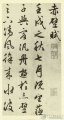 赤壁賦
壬戌之秋七月既望蘇
子與客泛舟遊於赤壁之
下清風徐來水波